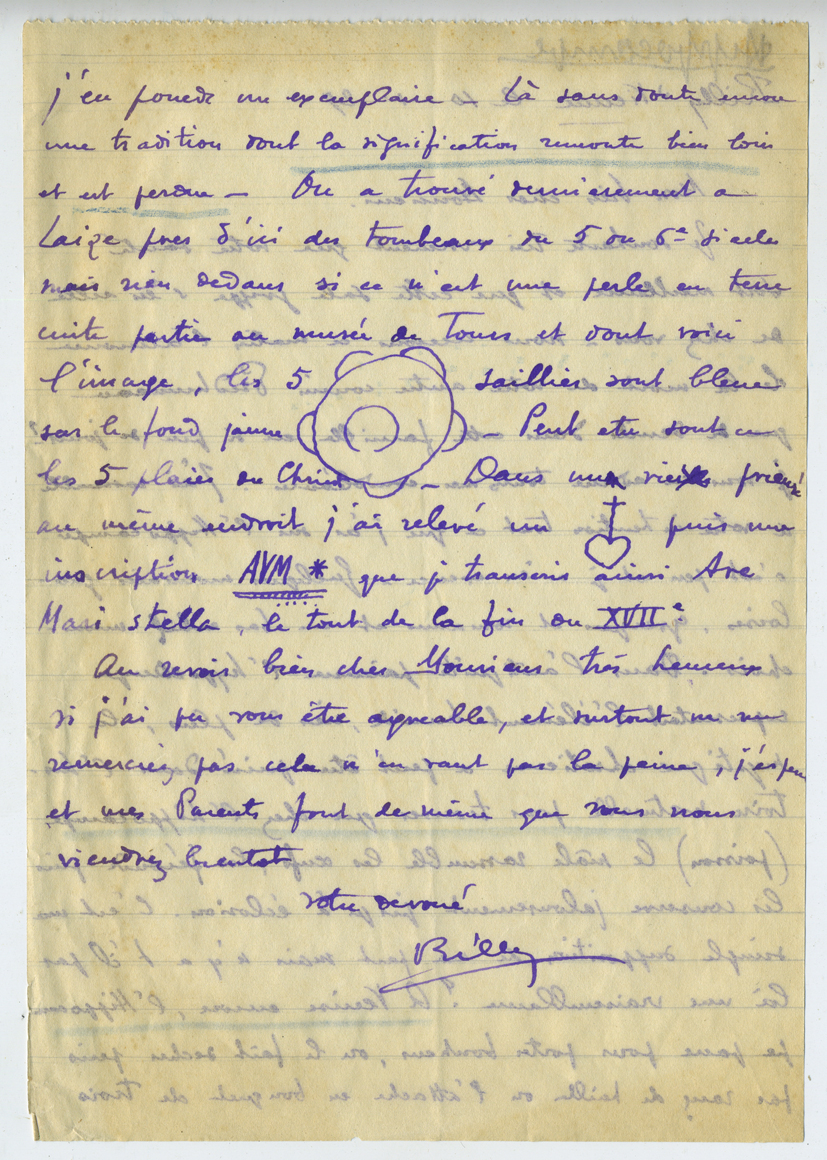 j'en possede un exemplaire Là sans doute encore
une tradition dont la signification remonte bien loin
et est perdue — On a trouvé dernierement a
près d'ici des tombeaux du 5 ou 6e siecle
mais rien dedans si ce n'est une perle en terre
cuite partie au musée de Tours et dont voici
l'image, les 5 saillies sont bleues
sur le fond jaune — Peut etre sont ce
les 5 plaies du Christ — Dans un vieux prieuré
au même endroit j'ai relevé un puis une
inscription AVM * que je transcris ainsi Ave
Maris stella, le tout de la fin du XVIIe
Au revoir bien cher Monsieur très heureux
si j'ai pu vous être agreable, et surtout ne me
remerciez pas cela n'en vaut pas la peine, j'espere
et mes Parents font de même que vous nous
viendrez bientot
Votre devoué
Billy